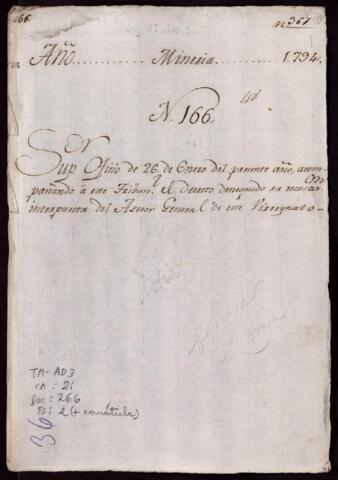 166.
nº 367
Año.......... Mineria......... 1.794.
N. 166.
Sup.or Ofiiio de 26. de Enero del presente año, acom-
pañando à este Tribun.l el Decreto denegando su recusac.on
interpuesta del Asesor General de este Virreynato-
General
TM-AD3
CA: 21
DOC: 266
FS: 2 (+ carátula)
36